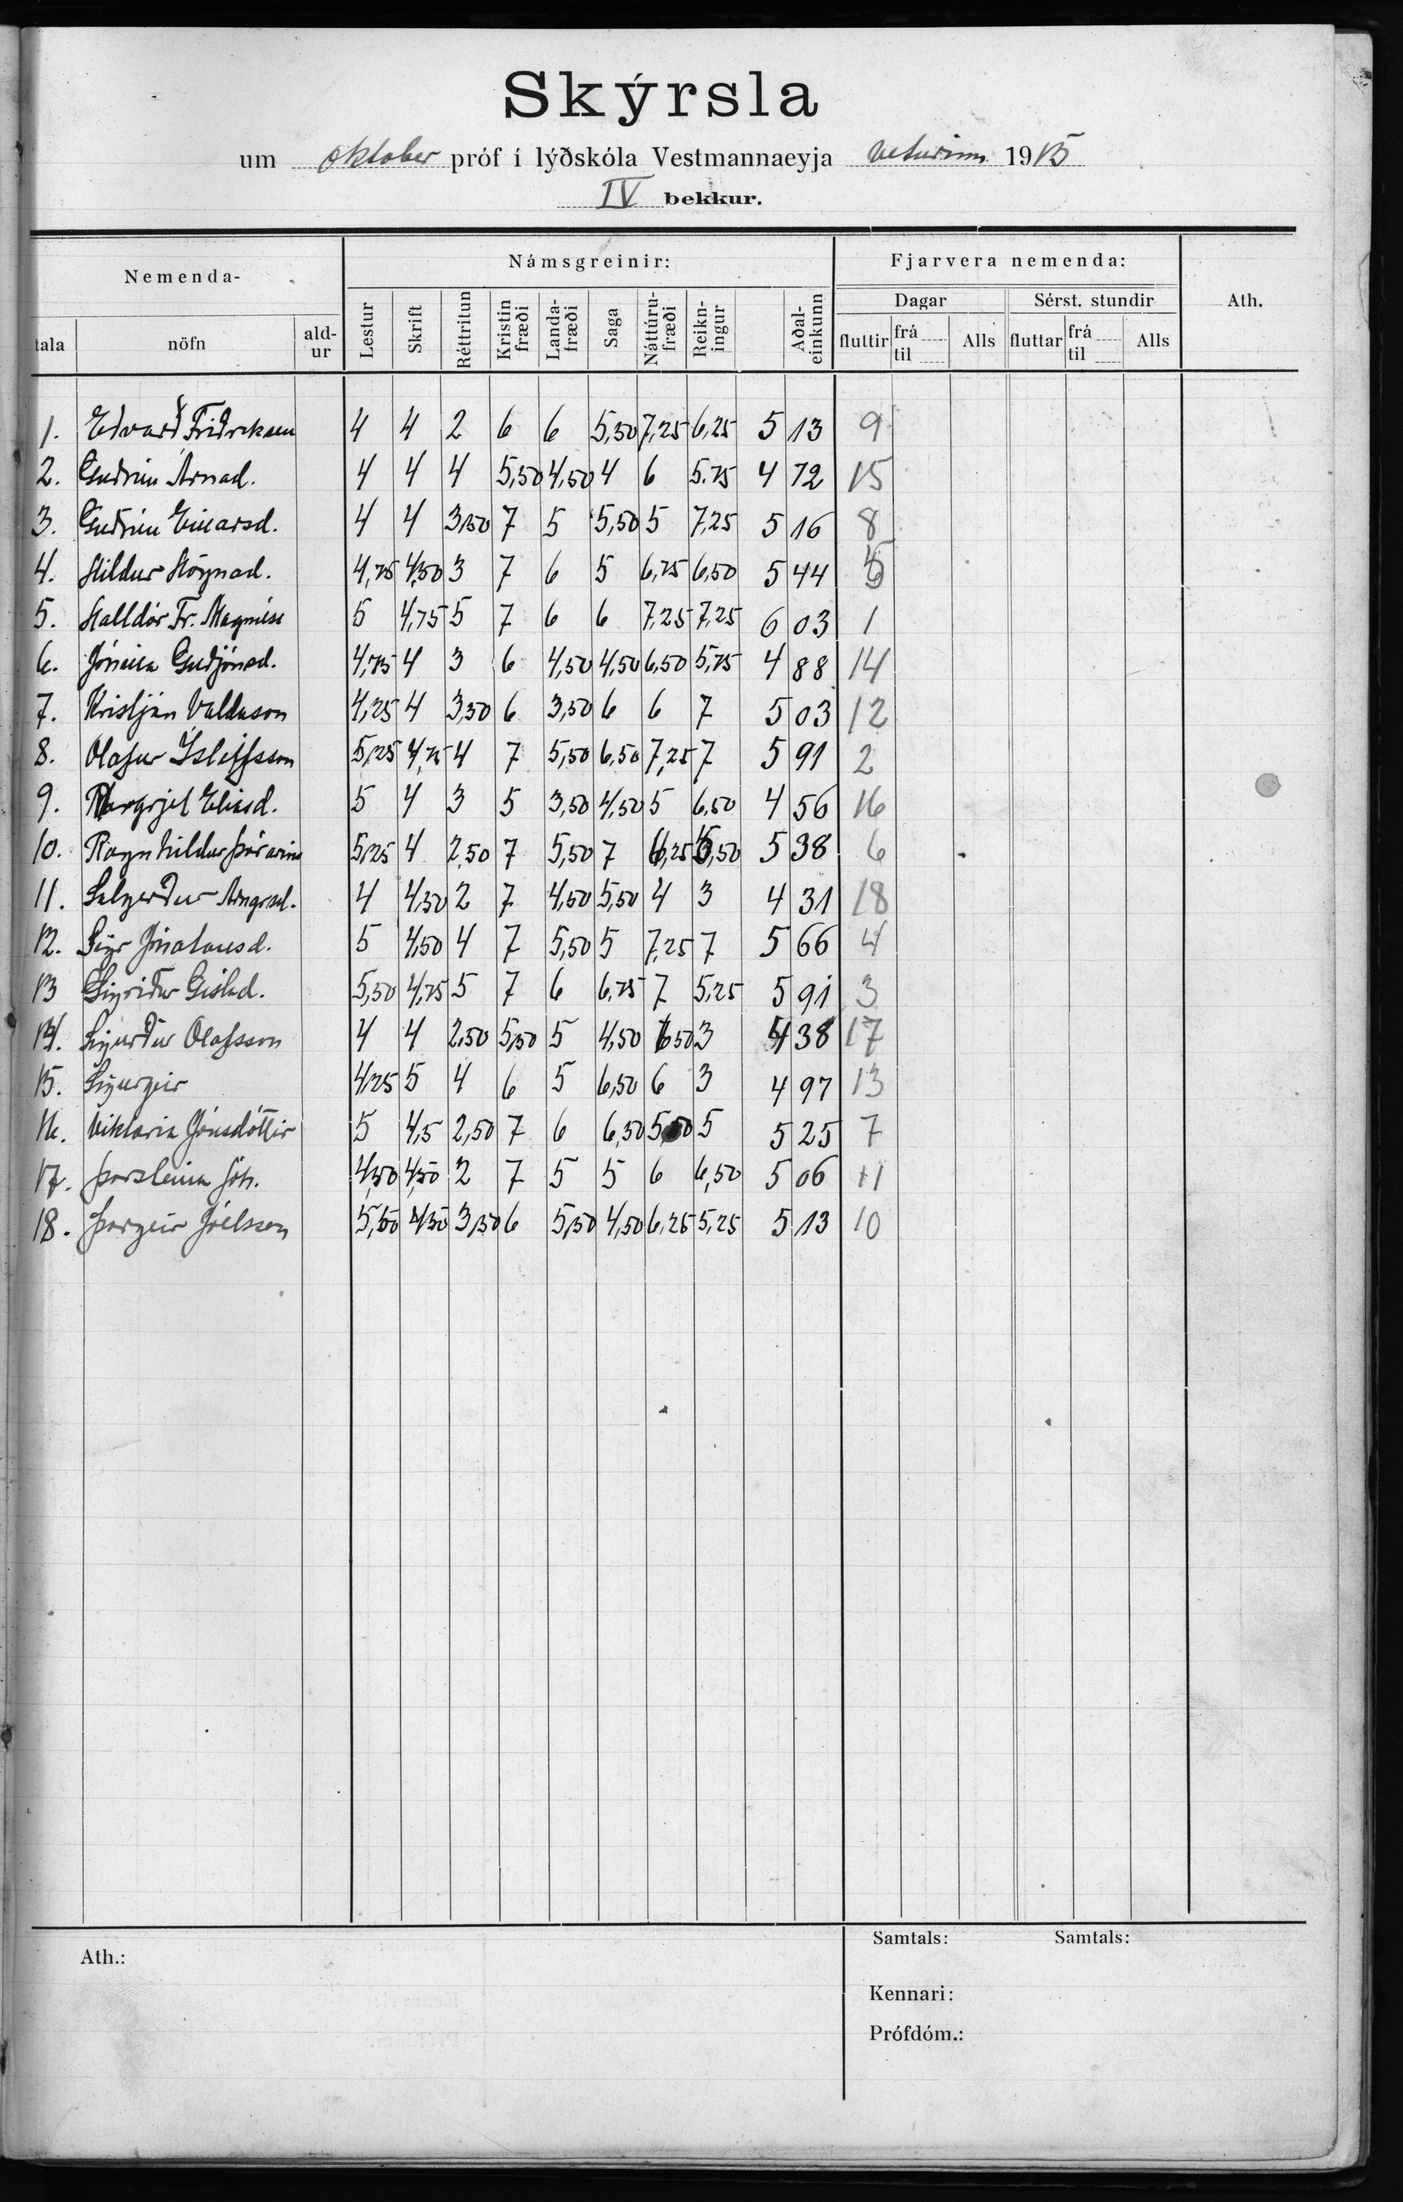 Skýrsla
um oktober próf í lýðskóla Vestmannaeyja veturinn 1915
IV bekkur.
Nemenda- Námsgreinir: Fjarvera nemenda: Ath.
Dagar Sérst. stundir
tala nöfn ald-ur Lestur Skrift Réttritun Kristin fræði Landa-fræði Saga Náttúru-fræði Reikn-ingur Aðal-einkunn fluttir frá til Alls fluttar frá til Alls
1. Edvard Friðreksen 4 4 2 6 6 5,50 7,25 6,25 5 13 9
2. Guðrún Árnad. 4 4 4 5,50 4,50 4 6 5.75 4 72 15
3. Guðrún Einarsd. 4 4 3,50 7 5 5,50 5 7,25 5 16 8
4. Hildur Högnad. 4,75 4,50 3 7 6 5 6,75 6,50 5 44 5
5. Halldór Fr. Magnúss 5 4,75 5 7 6 6 7,25 7,25 6 03 1
6. Jónína Guðjónsd. 4,75 4 3 6 4,50 4,50 6,50 5,75 4 88 14
7. Kristján Valdason 4,25 4 3,50 6 3,50 6 6 7 5 03 12
8. Olafur Ísleifsson 5,25 4,75 4 7 5,50 6,50 7,25 7 5 91 2
9. Margrjet Elíasd. 5 4 3 5 3,50 4,50 5 6,50 4 56 16
10. Ragnhildur Þórarins 5,25 4 2,50 7 5,50 7 6,25 5,50 5 38 6
11. Salgerður Arngrsd. 4 4,50 2 7 4,50 5,50 4 3 4 31 18
12. Sigr Jónatansd. 5 4,50 4 7 5,50 5 7,25 7 5 66 4
13 Sigríður Gíslad. 5,50 4,75 5 7 6 6,75 7 5,25 5 91 3
14. Sigurður Olafsson 4 4 2,50 5,50 5 4,50 6,50 3 4 38 17
15. Sigurgeir 4,25 5 4 6 5 6,50 6 3 4 97 13
16. Viktoría Jónsdóttir 5 4,5 2,50 7 6 6,50 5,50 5 5 25 7
17. Þorsteinn Jóh. 4,50 4,50 2 7 5 5 6 6,50 5 06 11
18. Þorgeir Jóelsson 5,50 4,50 3,50 6 5,50 4,50 6,25 5,25 5 13 10
Samtals: Samtals:
Ath.:
Kennari:
Prófdóm.: